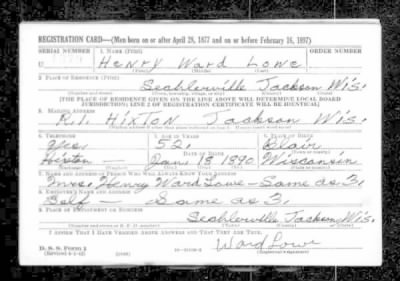 REGISTRATION CARD—(Men born on or after April 28, 1877 and on or before February 16, 1897)
SERIAL NUMBER 1. NAME (Print) ORDER NUMBER
Henry Ward Lowe
(First) (Middle) (Last)
2. PLACE OF RESIDENCE (Print)
Sechlerville Jackson Wis.
(Number and street) (Town, township, village, or city) (County) (State)
[THE PLACE OF RESIDENCE GIVEN ON THE LINE ABOVE WILL DETERMINE LOCAL BOARD
JURISDICTION; LINE 2 OF REGISTRATION CERTIFICATE WILL BE IDENTICAL]
3. MAILING ADDRESS
R.1. Hixton Jackson Wis.
4. TELEPHONE 5. AGE IN YEARS 6. PLACE OF BIRTH
Yes, 52, Clair
DATE OF BIRTH
Hixton — Jan. 13 1890 Wisconsin
7. NAME AND ADDRESS OF PERSON WHO WILL ALWAYS KNOW YOUR ADDRESS
Mrs. Henry Ward Lowe — Same as 3,
8. EMPLOYER'S NAME AND ADDRESS
Self — Same as 3,
9. PLACE OF EMPLOYMENT OR BUSINESS
Sechlerville Jackson Wis.
(Number and street or R. F. D. number) (Town) (County) (State)
I AFFIRM THAT I HAVE VERIFIED ABOVE ANSWERS AND THAT THEY ARE TRUE.
D. S. S. Form 1
Ward Lowe